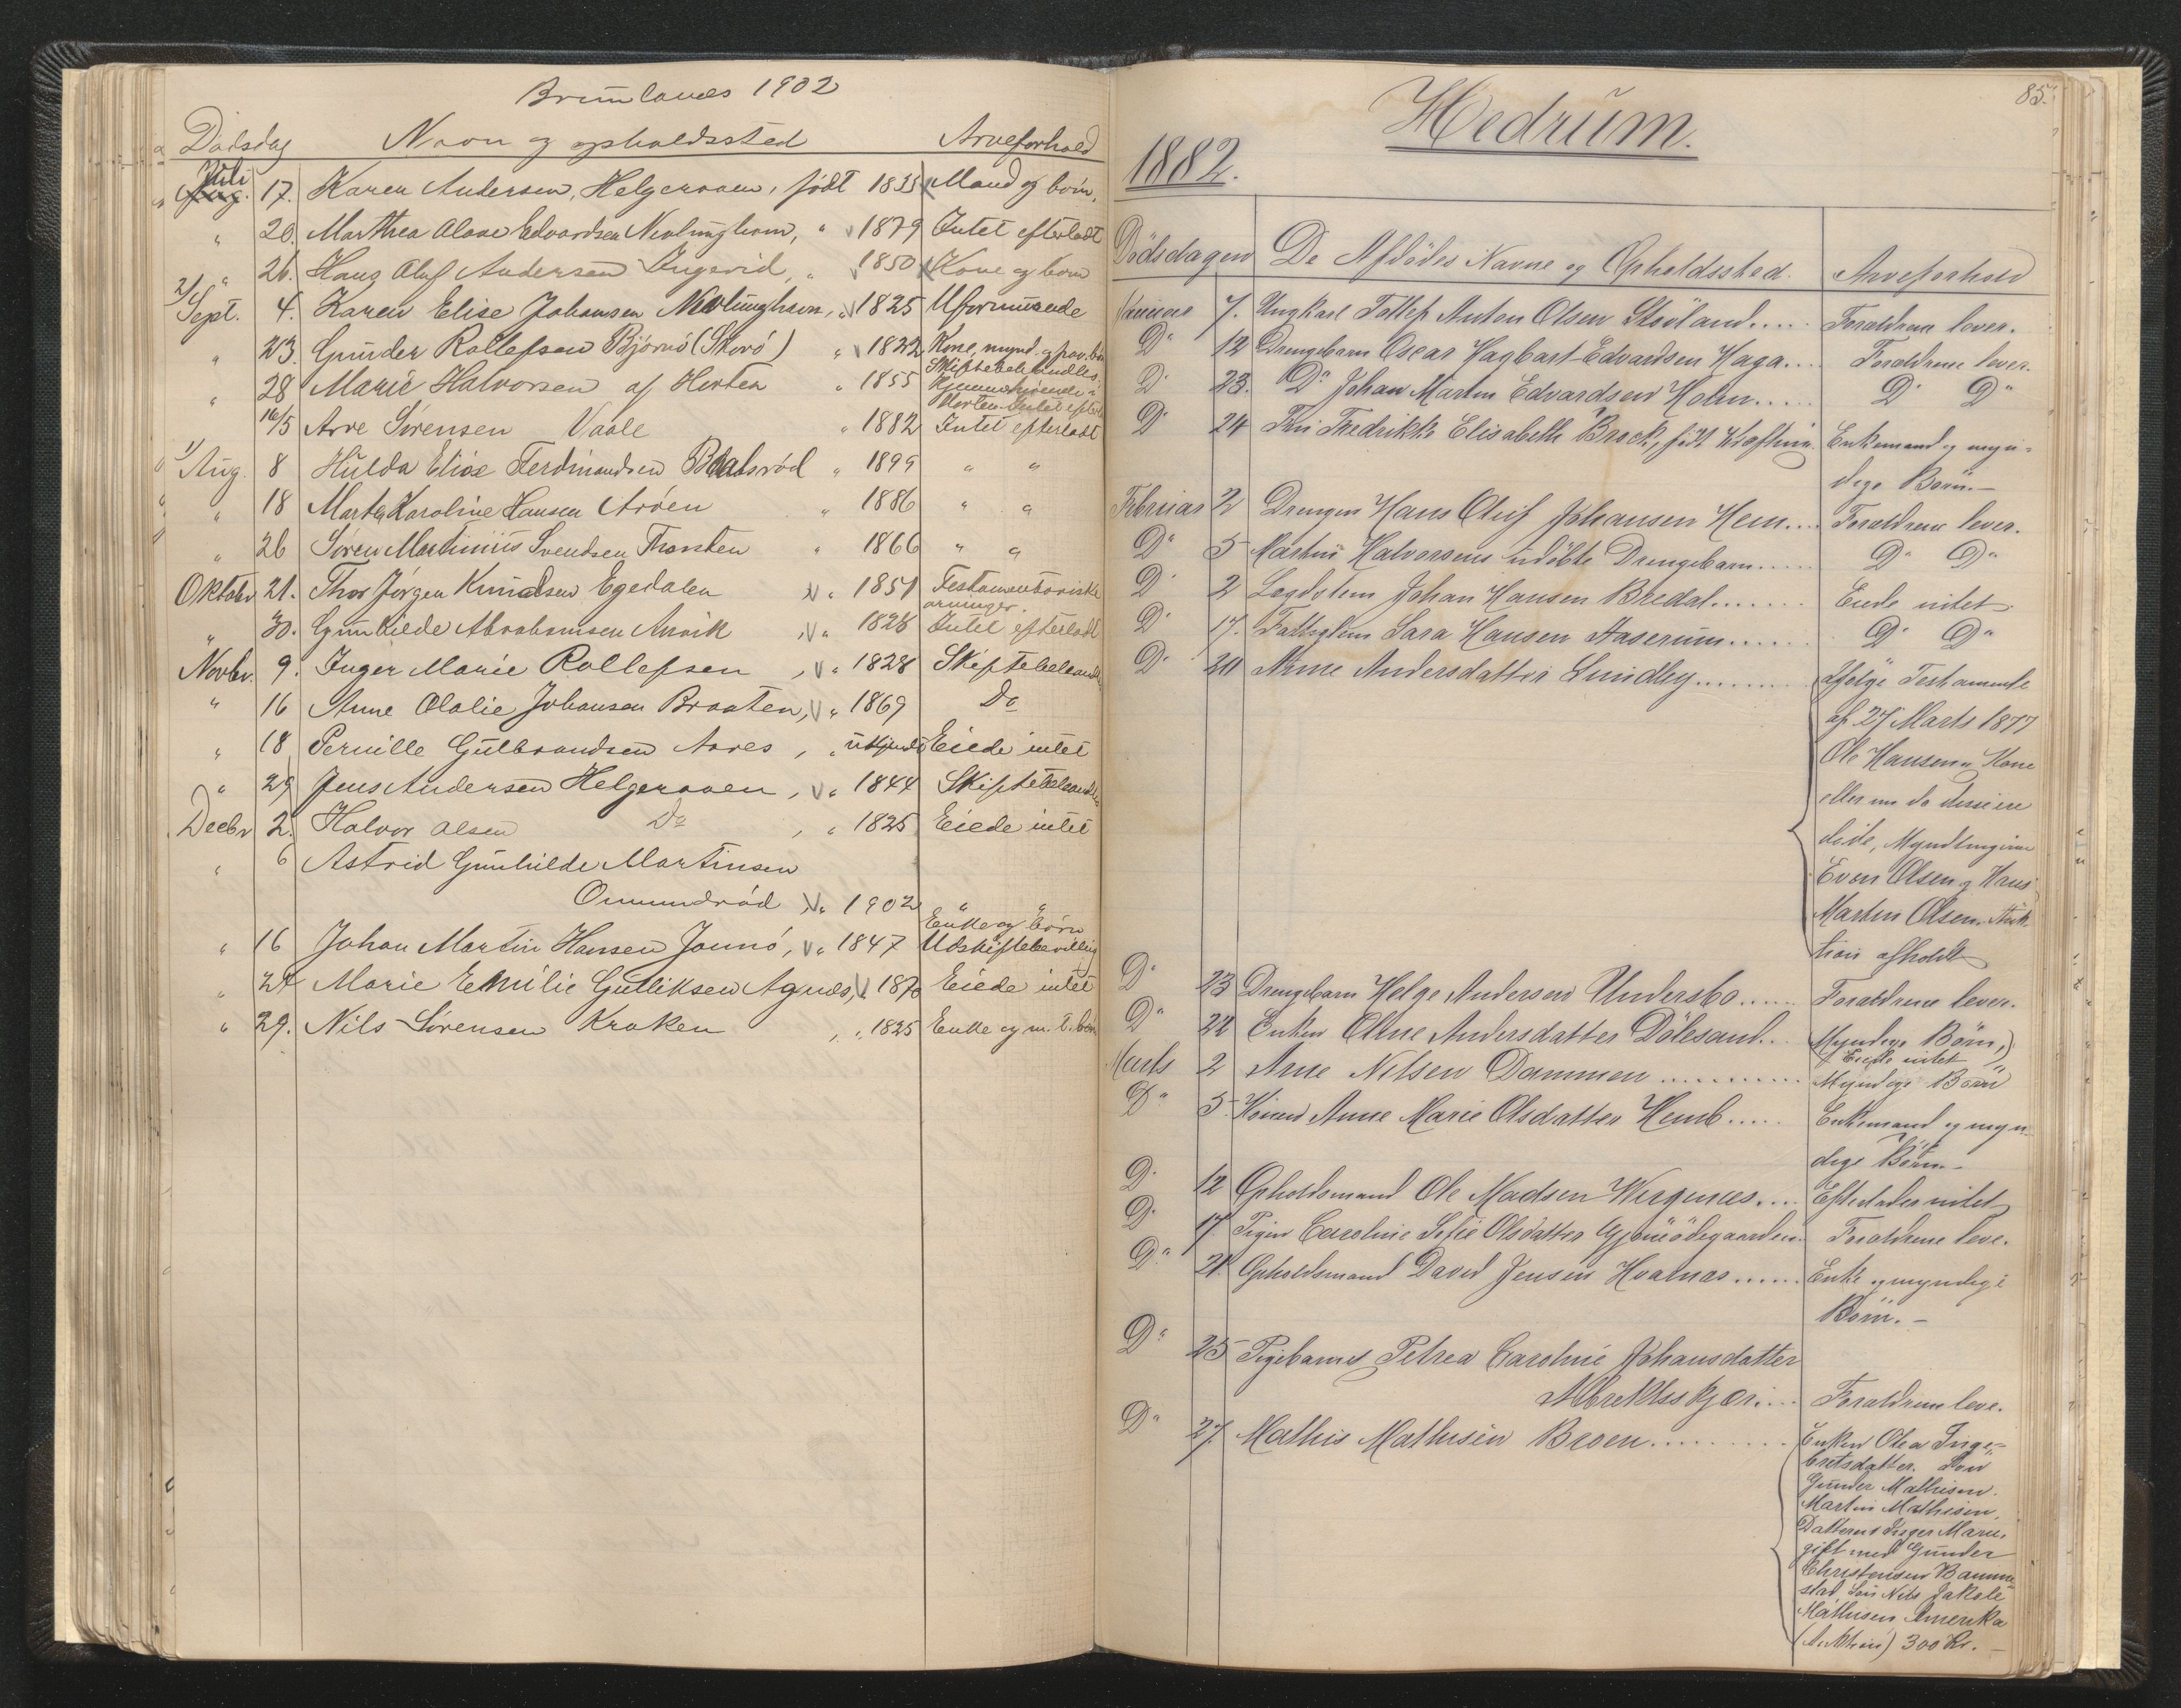 Brunlanes 1902
Dødsdag Navn og opholdssted Arveforhold
Juli
17. Karen Andersen, Helgeroaen, født 1835 Mand og børn.
" 20. Marthea Alase Edvardsen Nevlunghavn, " 1879 Intet efterladt
" 26. Hans Oluf Andersen Ingevid, " 1850 Kone og børn
2/ Sept. 4. Karen Elise Johansen Nevlunghavn, " 1825 Uformuende
" 23. Gunder Rollefsen Bjørnø (Storø) " 1822 Kone, mynd. og
Skiftebehandles.
" 28 Marie Halvorsen af Horten " 1855
Horten. Intet efterl.
16/5 Arve Sørensen Vaale " 1882 Intet efterladt
1/ Aug. 8 Hulda Elise Ferdinandsen " 1899 " "
" 18 Marta Karoline Hansen Aröen " 1886 " "
" 26 Søren Martinius Svendsen Thorsten " 1866 " "
Oktober 21. Thor Jørgen Knudsen Egedalen " 1851 Testamentariske
arvinger.
" 30. Gunhilde Abrahamsen Anvik " 1828 Intet efterladt
Novbr. 9. Inger Marie Rollefsen , " 1828 Skiftebehandles
" 16 Anne Olalie Johansen Braaten, " 1869 Do
" 18 Pernille Gulbrandsen Aares , " ubekjendt Eiede intet
" 29 Jens Andersen Helgeroaen , " 1844 Skiftebehandles
Decbr 2. Halvor Olsen Do , " 1825 Eiede intet
" 6 Astrid Gunhilde Martinsen
Omundrød , " 1902 " "
Enke og børn
" 16 Johan Martin Hansen Jonnø, " 1847 Udskiftebevilling
" 24 Marie Emilie Gulliksen Agnes, 1870 Eiede intet
" 29. Nils Sørensen Kroken , " 1825 Enke og m. b. børn
85.
Hedrum.
1882.
Dödsdagen De Afdödes Navne og Opholdssted. Arveforhold
Januar 7. Ungkarl Tollef Anton Olsen Stöland..... Forældrene lever.
Do 12 Drengebarn Oscar Hagbart Edvardsen Haga.... Forældrene lever.
Do 23. Do Johan Martin Edvardsen Holm..... Do Do
Do 24 Fru Fredrikke Elisabeth Brock, født Enkemand og myn-
dige Börn.-
Februar 2 Drengen Hans Oluf Johansen Hem.... Forældrene lever.
Do 5 Martin Halvorsens udöbte Drengebarn..... Do Do
Do 2 Lægdslem Johan Hansen Bredal....... Eiede intet.
Do 17. Fattiglem Sara Hansen Haserum....... Do Do
Do 20 Anne Andersdatter Lindley......... Ifölge Testamente
af 27 Marts 1877
Ole Hansen og Kone
eller om da disse ere
döde, Myndlingerne
Even Olsen og Hans
Martin Olsen. Auk-
tion afholdt
Do 23 Drengebarn Helge Andersen Undersbo...... Forældrene lever.
Do 22 Enken Anne Andersdatter Dölesand... Myndige Börn,
Eiede intet
Marts 2 Arne Nilsen Dammen ............ Myndige Börn
Do 5. Konen Anne Marie Olsdatter Hemb..... Enkemand og myn-
dige Börn.-
Do 12 Opholdsmand Ole Madsen Wergenæs.... Efterlader intet
Do 17. Pigen Caroline Sofie Olsdatter Gjönöödegaarden. Forældrene leve.
Do 21 Opholdsmand David Jensen Hvalnæs...... Enke og myndige
Börn. -
Do 25 Pigebarnet Petrea Caroline Johansdatter
Albrektsskjær.... Forældrene leve.
Do 27. Mathis Mathisen Broen......... Enken Olea Inge-
bretsdatter. Søn
Gunder Mathisen.
Martin Mathisen,
Datteren Inger Marie,
gift med Gunder
Christensen Bamme-
stad Sön Nils Jakob
Mathisen Amerika
(Auktion) 300 Kr. -